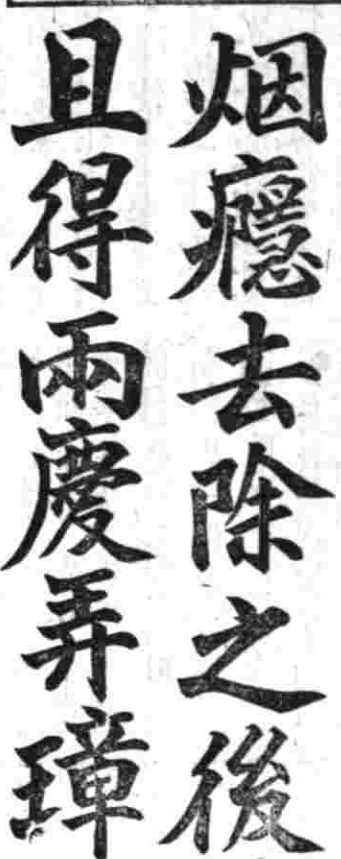 烟癮去除之後
且得兩慶弄璋